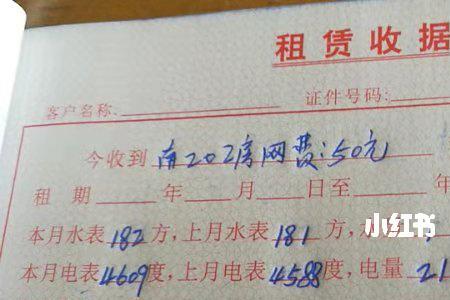 租赁收据
客户名称: 证件号码:
今收到南202房网费:50元
租 期 年 月 日至 年
本月水表182方,上月水表181方,
本月电表4609度,上月电表4588度,电量21
小红书